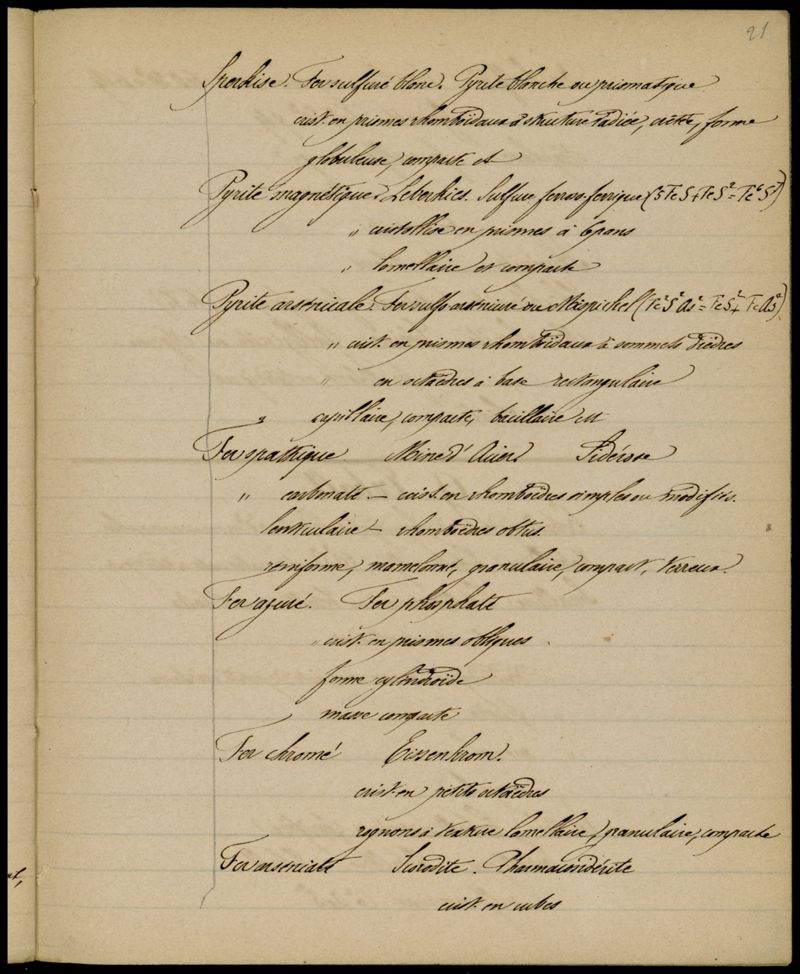 21
Sperkise. Fer sulfuré blanc. Pyrite blanche ou prismatique
crist. en prismes rhomboïdaux à structure radiée, crêtée, forme
globuleuse, compacte et
Pyrite magnétique. Leberkies. Sulfure ferroso-ferrique (5FeS+FeS²=Fe⁶S⁷)
" cristallise en prismes à 6 pans
" lamellaire et compacte
Pyrite arsénicale. Fer sulfo-arseniuré ou Mispickel (Fe²S²As²=FeS²+FeAs²)
" crist. en prismes rhomboïdaux à sommets dièdres
" en octaèdres à base rectangulaire
" capillaire, compacte, bacillaire et
Fer spathique Mine d'Acier Sidérose
" carbonaté — crist. en rhomboèdres simples ou modifiés.
lenticulaire — rhomboèdres obtus.
reniforme, mamelonné, granulaire, compact, terreux.
Fer azuré. Fer phosphaté
" crist. en prismes obliques.
forme cylindroïde
masse compacte
Fer chromé Eisenkrom.
crist. en petits octaèdres
rognons à texture lamellaire, granulaire, compacte
Fer arseniaté Scorodite. Pharmacosidérite
crist. en cubes